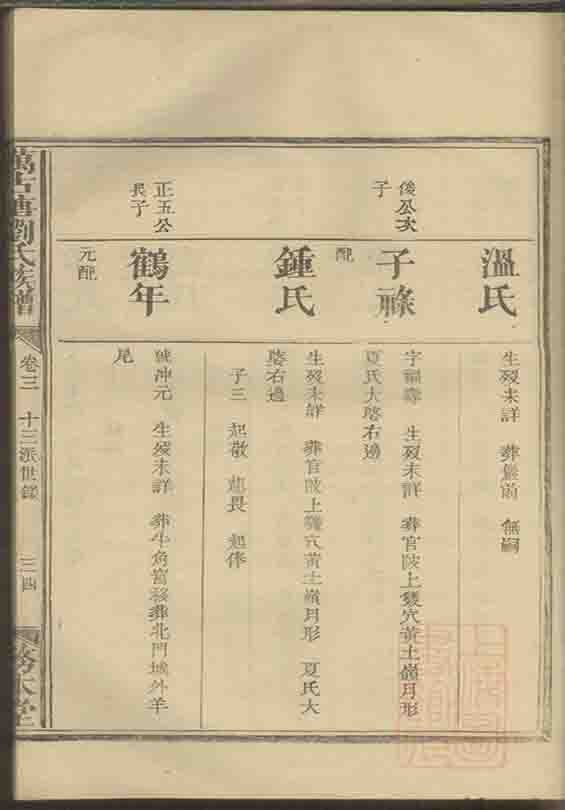 溫氏
生歿未詳 葬 前 無嗣
後公次
子
子祿
字福壽 生歿未詳 葬官陂上雙穴黃土嶺月形
夏氏大塋右邊
配
鍾氏
生歿未詳 葬官陂上雙穴黃土嶺月形 夏氏大
塋右邊
子三 起敬 起畏 起俸
正五公
長子
鶴年
號沖元 生歿未詳 葬牛角窩移葬北門城外羊
尾
元配
萬古塘劉氏族譜
卷三 十三派世錄
三四
務本堂